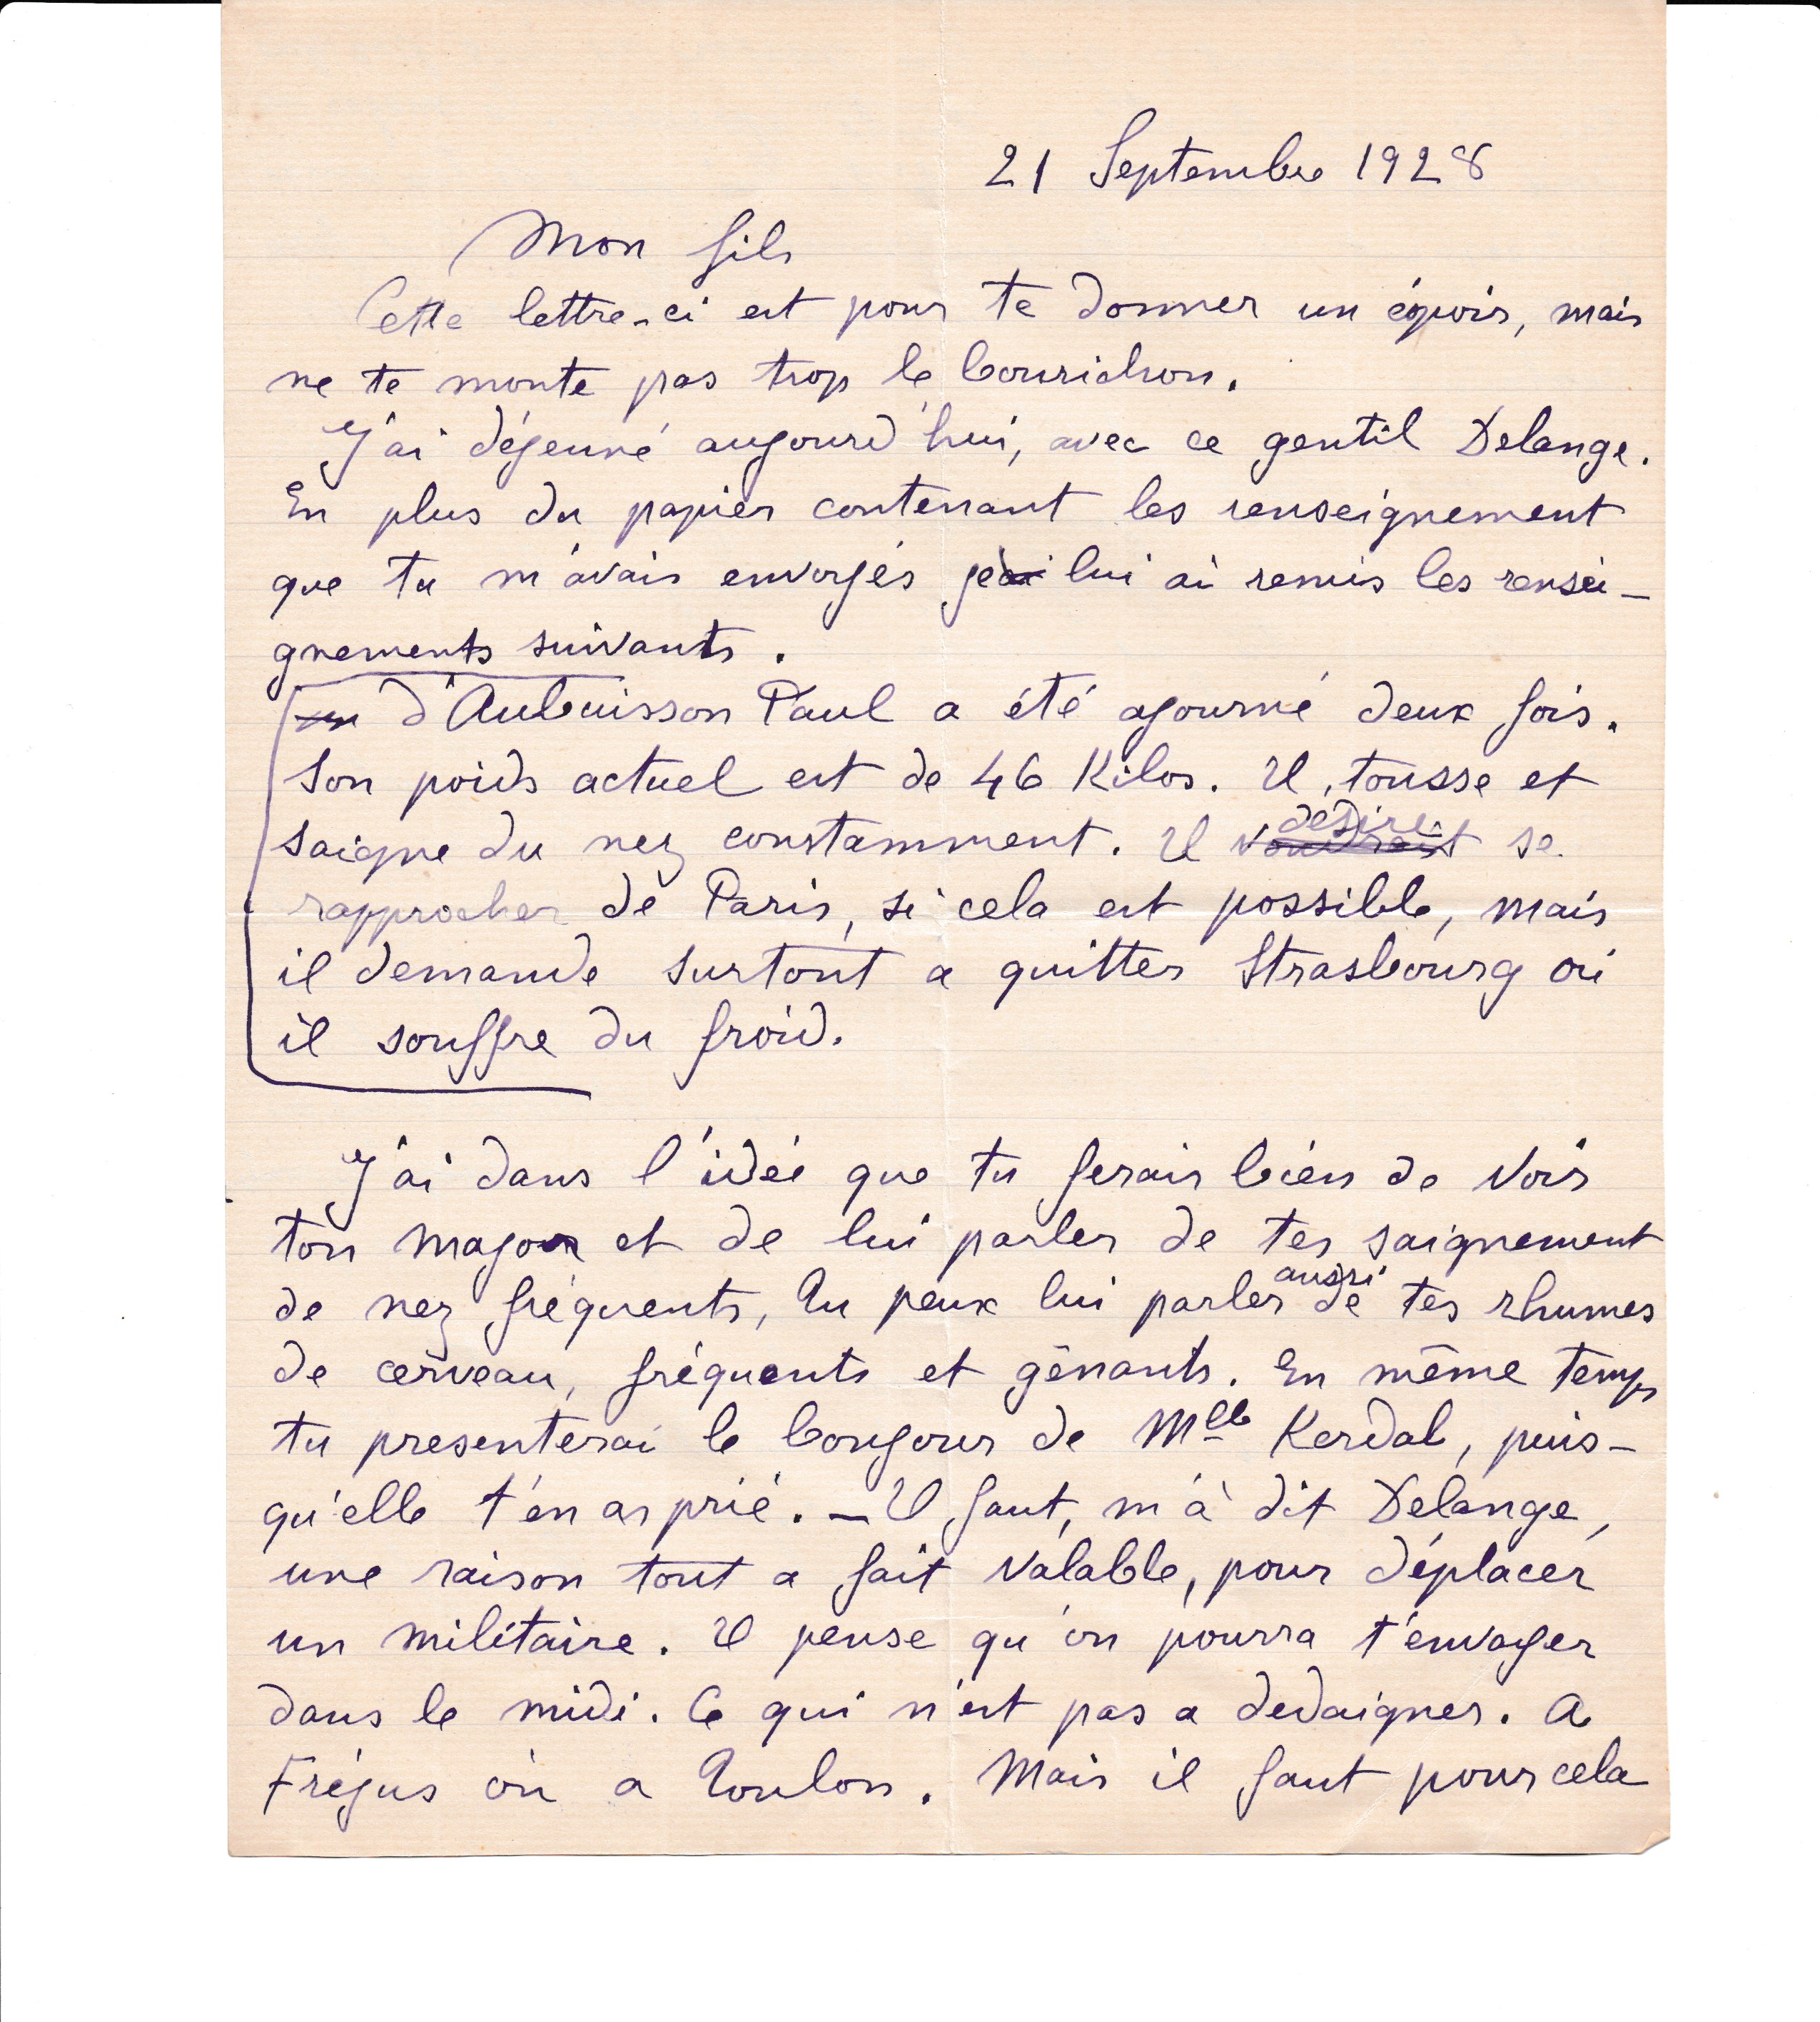 21 Septembre 1928
Mon fils
Cette lettre-ci est pour te donner un éspoir, mais
ne te monte pas trop le bourichon.
J'ai déjeuné aujourd'hui, avec ce gentil Delange.
En plus du papier contenant les renseignement
que tu m'avais envoyés je lui ai remis les rensei-
gnements suivants.
d'Aubuisson Paul a été ajourné deux fois.
Son poids actuel est de 46 Kilos. Il tousse et
saigne du nez constamment. Il voudrait désire se
rapprocher de Paris, si cela est possible, mais
il demande surtout a quitter Strasbourg où
il souffre du froid.
J'ai dans l'idée que tu ferais bien de voir
ton major et de lui parler de tes saignement
de nez fréquents, Tu peux lui parler aussi de tes rhumes
de cerveau, fréquents et gênants. En même temps
tu presenterai le bonjour de Mlle Kerdal, puis-
qu'elle t'en as prié. - Il faut, m'a dit Delange,
une raison tout a fait valable, pour déplacer
un militaire. Il pense qu'on pourra t'envoyer
dans le midi. Ce qui n'est pas a dedaigner. A
Fréjus ou a Toulon. Mais il faut pour cela